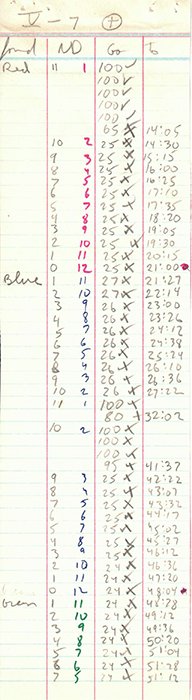 V - 7 +
found ND Go t
Red 11 1 100 ✓
100 ✓
100 ✓
100 ✓
65 x 14:05
10 2 25 x 14:30
9 3 25 x 15:15
8 4 25 x 16:00
7 5 25 x 16:25
6 6 25 x 17:10
5 7 25 x 17:35
4 8 25 x 18:20
3 9 25 x 19:05
2 10 25 x 19:30
1 11 25 x 20:15
0 12 25 x 21:00
Blue 1 11 27 x 21:27
2 10 27 x 22:14
3 9 26 x 23:00
4 8 26 x 23:26
5 7 26 x 24:12
6 6 26 x 24:38
7 5 26 x 25:24
8 4 26 x 26:10
9 3 26 x 26:36
10 2 26 x 27:22
11 1 100 x
80 x 32:02
10 2 100 x
100 x
100 x
95 x 41:37
9 3 25 x 42:22
8 4 25 x 43:07
7 5 25 x 43:32
6 6 25 x 44:17
5 7 25 x 45:02
4 8 25 x 45:27
3 9 25 x 46:12
2 10 24 x 46:36
1 11 24 x 47:20
0 12 24 x 48:04
Green 1 11 24 x 48:28
2 10 24 x 49:12
3 9 24 x 49:36
4 8 24 x 50:20
5 7 24 x 51:04
6 6 24 x 51:28
7 5 24 x 51:12